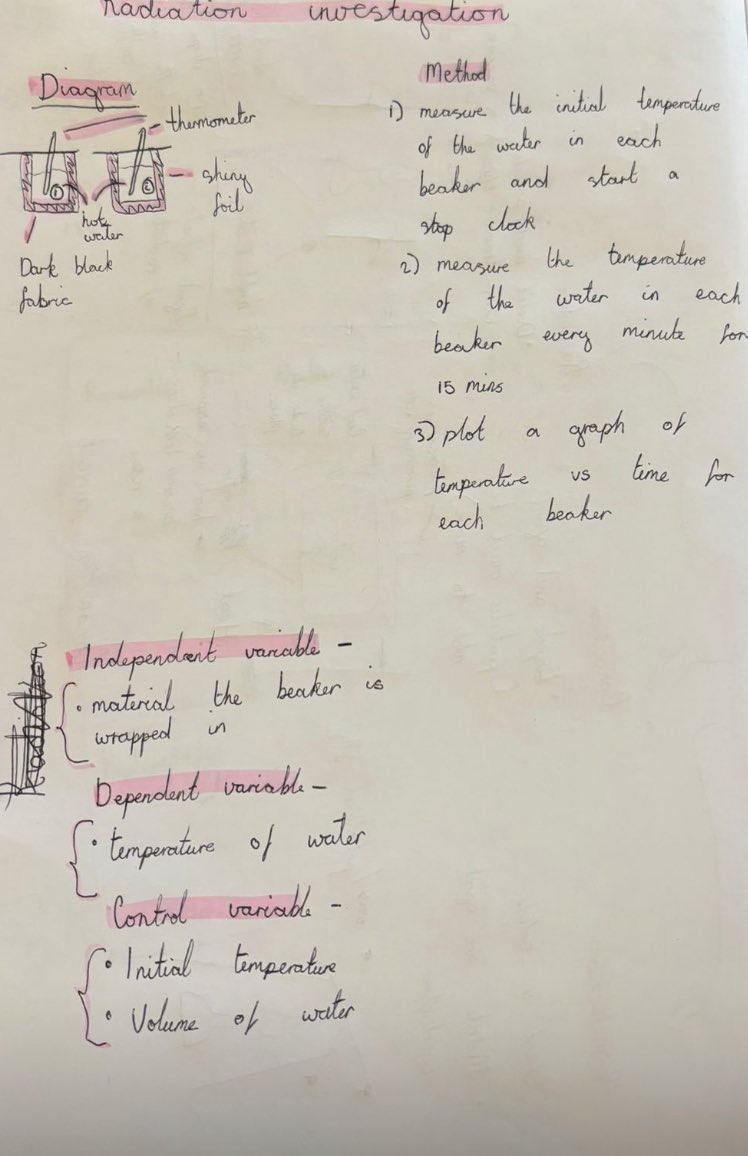 Radiation investigation
Diagram
thermometer
shiny
foil
1
2
hot
water
Dark black
fabric
Method
1) measure the initial temperature
of the water in each
beaker and start a
stop clock
2) measure the temperature
of the water in each
beaker every minute for
15 mins
3) plot a graph of
temperature vs time for
each beaker
Independent variable -
• material the beaker is
wrapped in
Dependent variable -
• temperature of water
Control variable -
• Initial temperature
• Volume of water